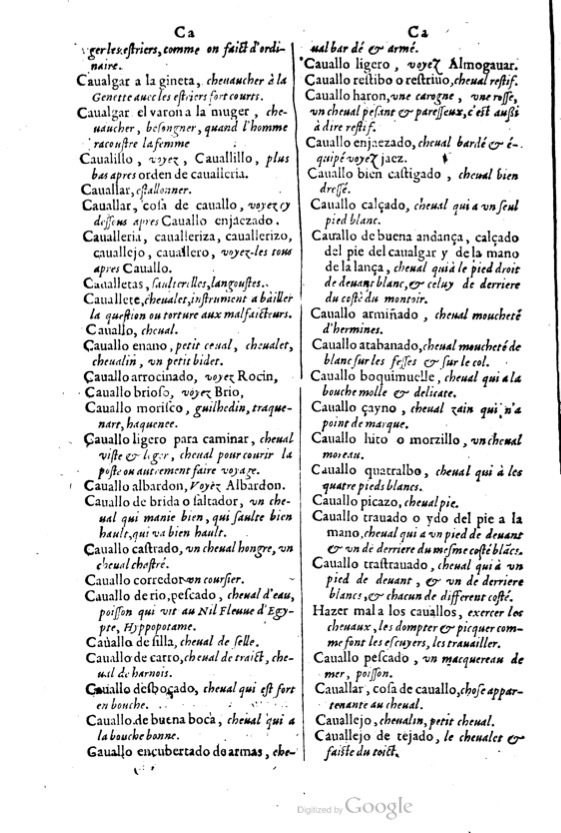 Ca
ger les estriers, comme on faict d'ordi-
naire.
Caualgar a la gineta, cheuaucher à la
Genette auec les estriers fort courts.
Caualgar el varon a la muger, che-
uaucher, besongner, quand l'homme
racoustre la femme
Cauallillo, voyez, Cauallillo, plus
bas apres orden de caualleria.
Cauallar, estallonner.
Cauallar, cosa de cauallo, voyez cy
dessous apres Cauallo enjaezado.
Caualleria, caualleriza, cauallerizo,
cauallejo, cauallero, voyez-les tous
apres Cauallo.
Caualletas, saulterelles, langoustes.
Cauallete, cheualet, instrument a bailler
la question ou torture aux malfaicteurs.
Cauallo, cheual.
Cauallo enano, petit ceual, cheualet,
cheualin, vn petit bidet.
Cauallo arrocinado, voyez Rocin,
Cauallo brioso, voyez Brio,
Cauallo morisco, guilhedin, traque-
nart, haquenee.
Cauallo ligero para caminar, cheual
viste & leger, cheual pour courir la
poste ou autrement faire voyage.
Cauallo albardon, Voyez Albardon.
Cauallo de brida o saltador, vn che-
ual qui manie bien, qui saulte bien
hault, qui va bien hault.
Cauallo castrado, vn cheual hongre, vn
cheual chastré.
Cauallo corredor vn coursier.
Cauallo de rio, pescado, cheual d'eau,
poisson qui vit au Nil Fleuue d'Egy-
pte, Hyppopotame.
Cauallo de silla, cheual de selle.
Cauallo de carro, cheual de traict, che-
ual de harnois.
Cauallo desbocado, cheual qui est fort
en bouche.
Cauallo de buena boca, cheual qui a
la bouche bonne.
Cauallo encubertado de armas, che-
Ca
ual bardé & armé.
Cauallo ligero, voyez Almogauar.
Cauallo restibo o restriuo, cheual restif.
Cauallo haron, vne carogne, vne rosse,
vn cheual pesant & paresseux, c'est aussi
à dire restif.
Cauallo enjaezado, cheual bardé & é-
quipé voyez jaez.
Cauallo bien castigado, cheual bien
dressé.
Cauallo calçado, cheual qui a vn seul
pied blanc.
Cauallo de buena andança, calçado
del pie del caualgar y de la mano
de la lança, cheual qui à le pied droit
de deuant blanc, & celuy de derriere
du costé du montoir.
Cauallo armiñado, cheual moucheté
d'hermines.
Cauallo atabanado, cheual moucheté de
blanc sur les fesses & sur le col.
Cauallo boquimuelle, cheual qui a la
bouche molle & delicate.
Cauallo çayno, cheual zain qui n'a
point de marque.
Cauallo hito o morzillo, vn cheual
moreau.
Cauallo quatralbo, cheual qui à les
quatre pieds blancs.
Cauallo picazo, cheual pie.
Cauallo trauado o ydo del pie a la
mano, cheual qui a vn pied de deuant
& vn de derriere du mesme costé blãcs.
Cauallo trastrauado, cheual qui à vn
pied de deuant, & vn de derriere
blancs, & chacun de different costé.
Hazer mal a los cauallos, exercer les
cheuaux, les dompter & picquer com-
me font les escuyers, les trauailler.
Cauallo pescado, vn macquereau de
mer, poisson.
Cauallar, cosa de cauallo, chose appar-
tenante au cheual.
Cauallejo, cheualin, petit cheual.
Cauallejo de tejado, le cheualet &
faiste du toict.
Digitized by Google